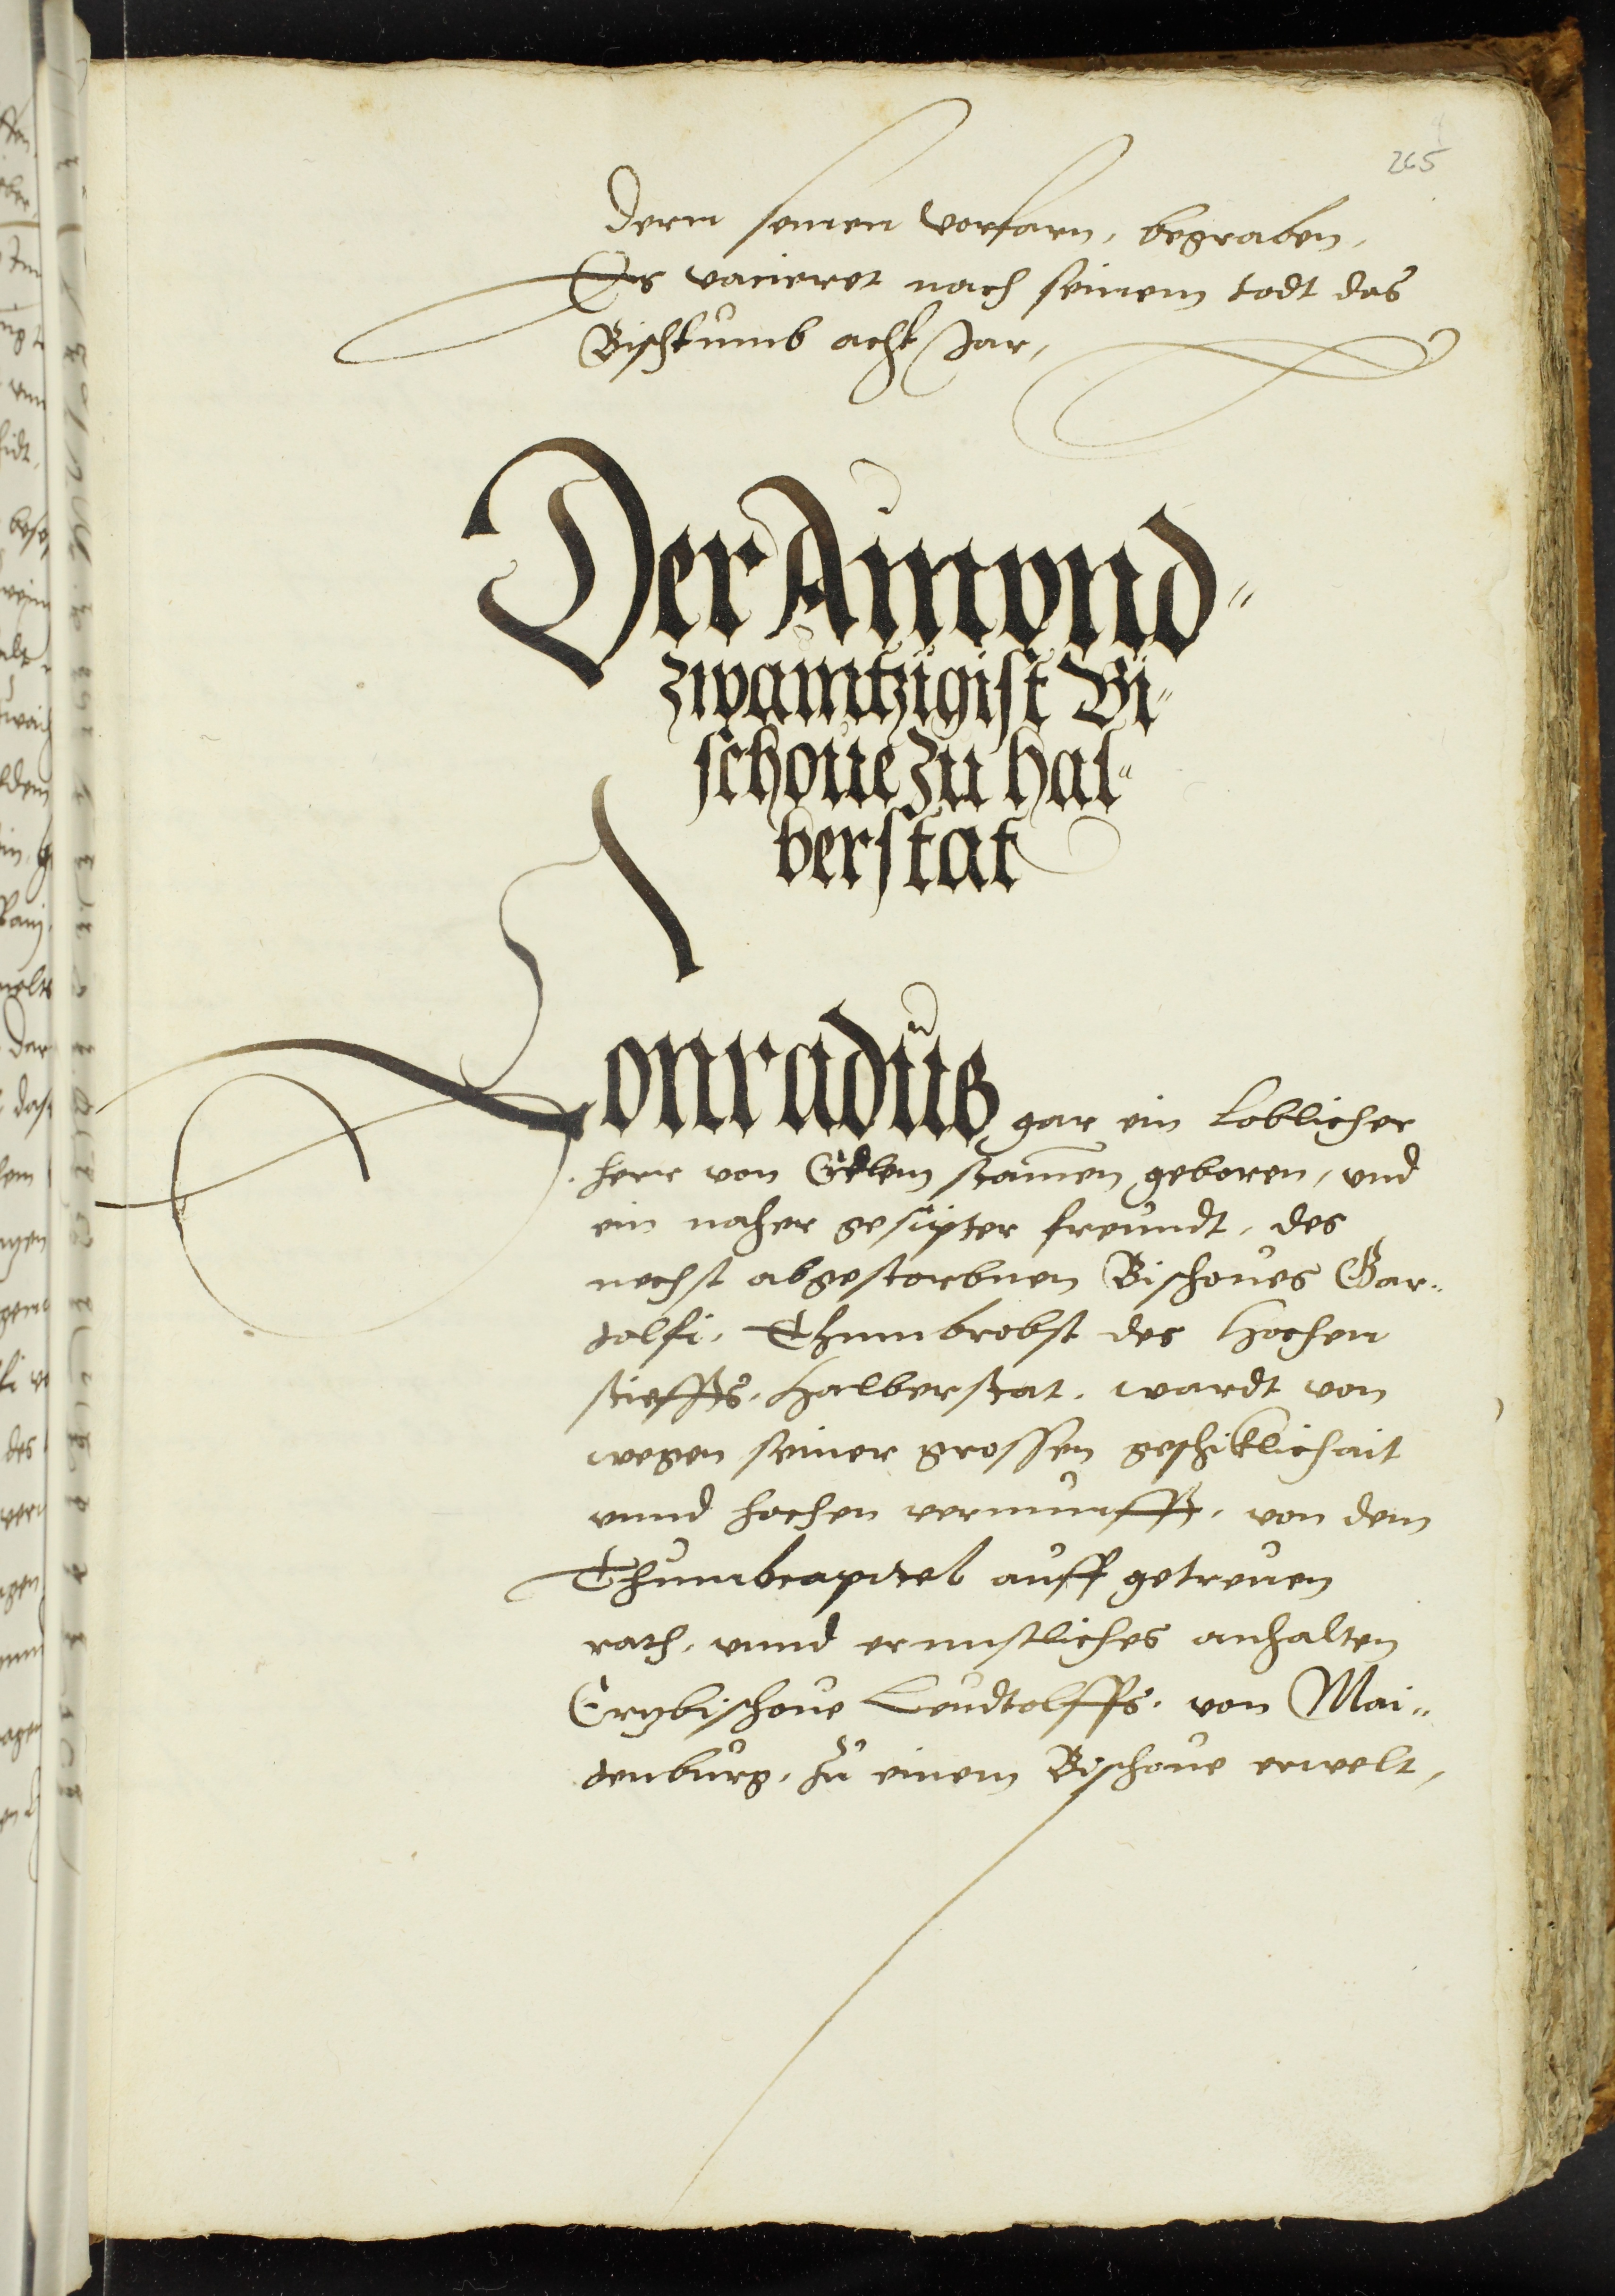 265
dern seinen vorfarn, begraben,
Es vacieret nach seinem todt das
Bischtumb acht Jar,
Der Ainvnd-
zwaintzigist Bi-
schoue zu Hal-
berstat
Conradus gar ein loblicher
herr von Edlem stamen geboren, vnd
ein naher gesipter freundt, des
nechst abgestorbnen Bischoues Gar-
dolfi, Thumbrobst des Hochen
stieffts, Halberstat, wardt von
wegen seiner grossen geschiklichait
vnnd hochen vernunfft, von dem
Thumbcapitel auff getreuen
rath, vnnd ernnstliches anhalten
Ertzbischoue Leudtolffs, von Mai-
denburg, zu einem Bischoue erwelt,